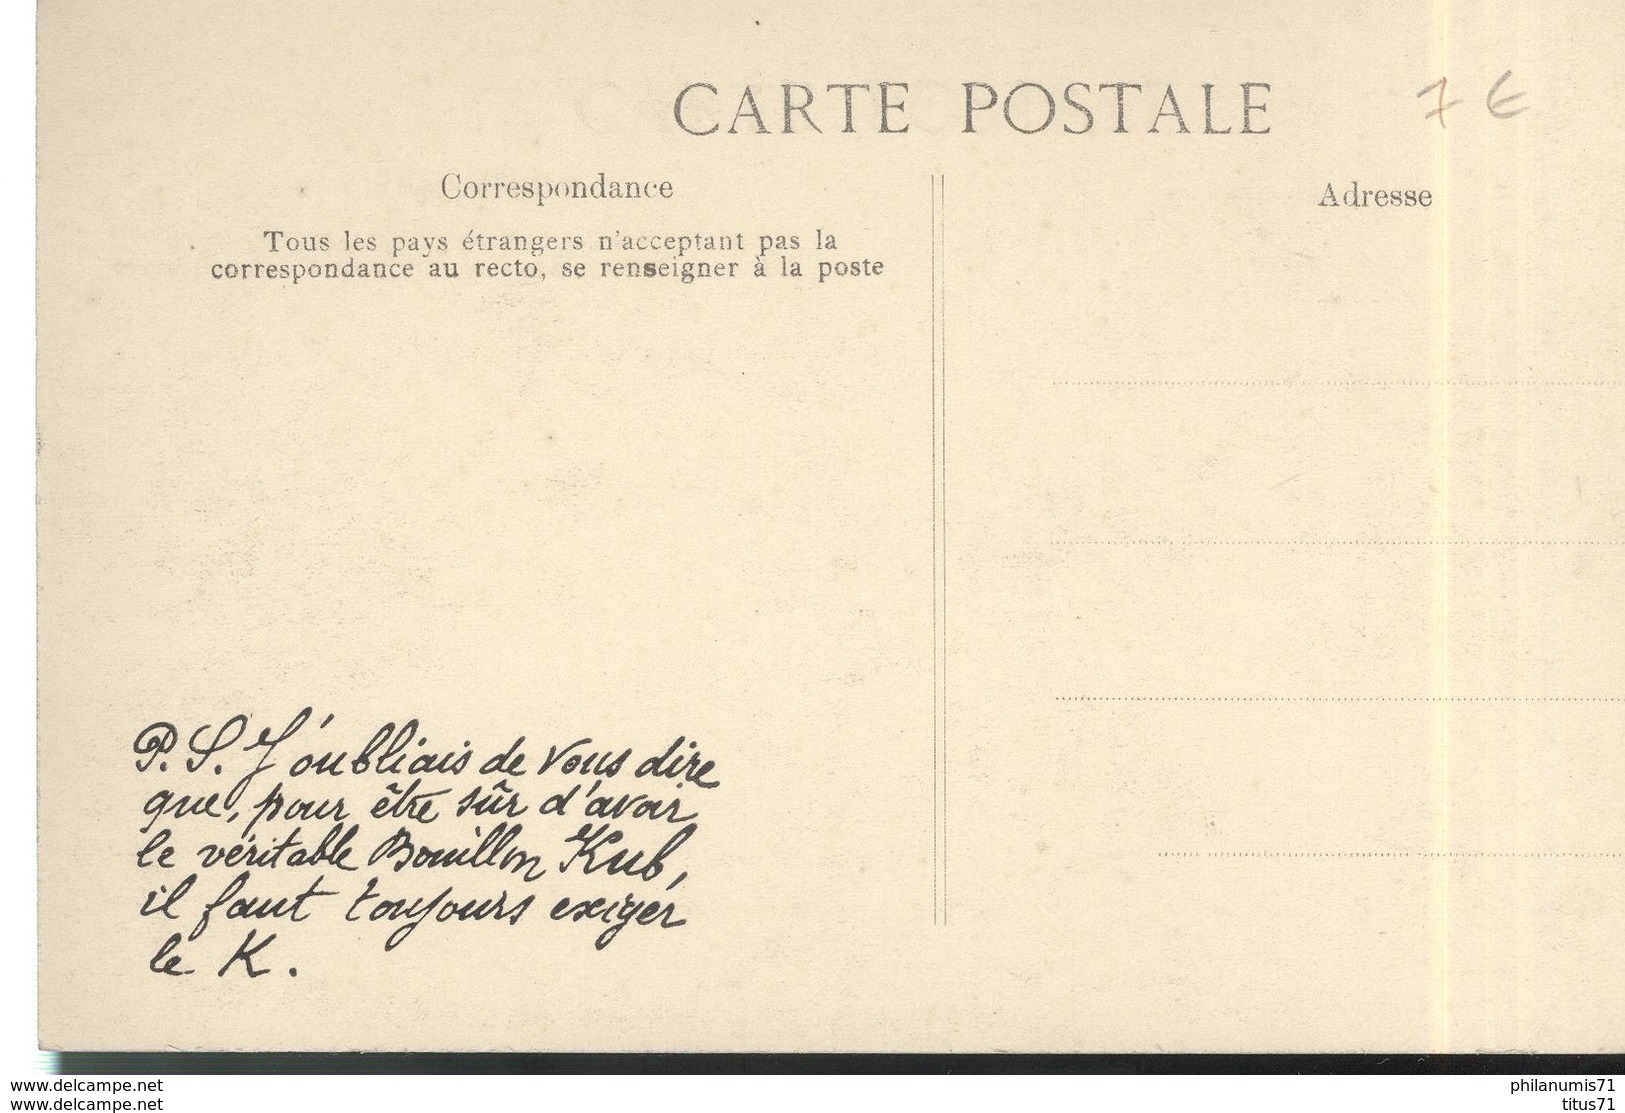 CARTE POSTALE
7 €
Correspondance
Adresse
Tous les pays étrangers n'acceptant pas la
correspondance au recto, se renseigner à la poste
P.S. J'oubliais de vous dire
que, pour être sûr d'avoir
le véritable Bouillon Kub,
il faut toujours exiger
le K.
www.delcampe.net
philanumis71
www.delcampe.net
titus71